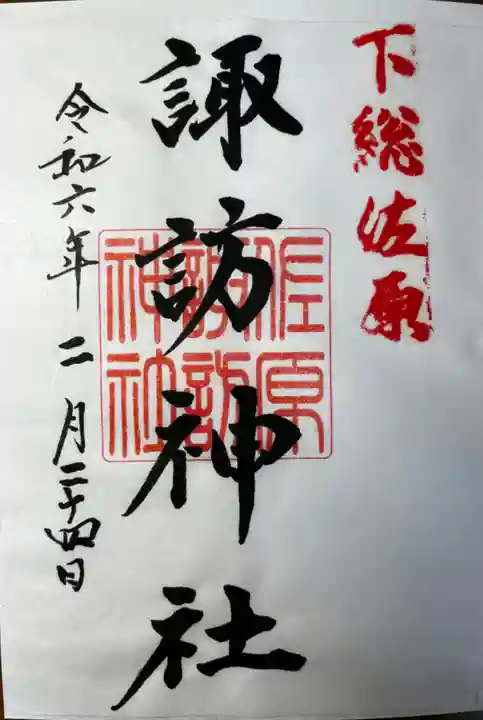 下総佐原
諏訪神社
佐原
諏訪
神社
令和六年二月二十四日